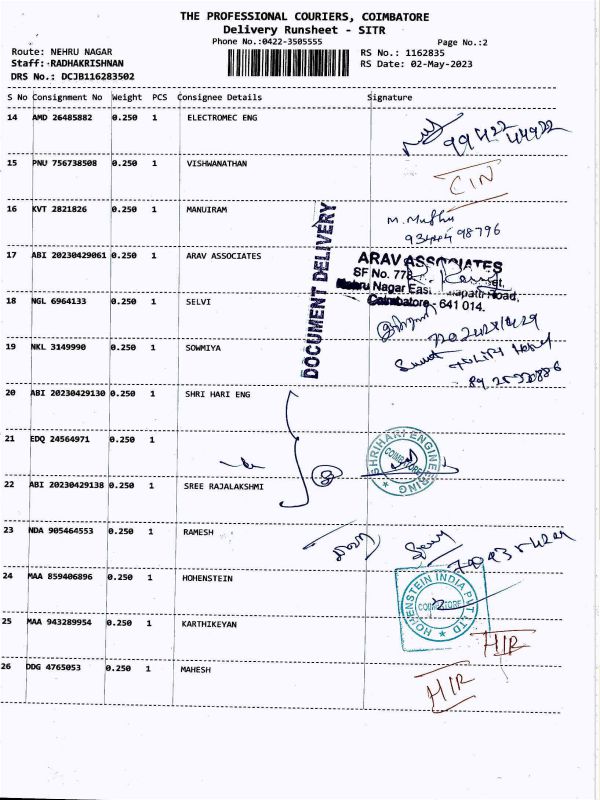 THE PROFESSIONAL COURIERS, COIMBATORE
Delivery Runsheet - SITR
Phone No.:0422-3505555
Page No.:2
Route: NEHRU NAGAR
RS No.: 1162835
Staff: RADHAKRISHNAN
RS Date: 02-May-2023
DRS No.: DCJB116283502
S No Consignment No Weight PCS Consignee Details Signature
14 AMD 26485882 0.250 1 ELECTROMEC ENG
15 PNU 756738508 0.250 1 VISHWANATHAN
CIN
16 KVT 2821826 0.250 1 MANUIRAM
DOCUMENT DELIVERY
17 ABI 20230429061 0.250 1 ARAV ASSOCIATES
ARAV ASSOCIATES
SF No. 778
Nehru Nagar East
Road,
Coimbatore - 641 014.
18 NGL 6964133 0.250 1 SELVI
19 NKL 3149990 0.250 1 SOWMIYA
20 ABI 20230429130 0.250 1 SHRI HARI ENG
21 EDQ 24564971 0.250 1
SHRIHARI ENGINEERING
COIMBATORE
22 ABI 20230429138 0.250 1 SREE RAJALAKSHMI
23 NDA 905464553 0.250 1 RAMESH
24 MAA 859406896 0.250 1 HOHENSTEIN
HOHENSTEIN INDIA PVT LTD
COIMBATORE
25 MAA 943289954 0.250 1 KARTHIKEYAN
HIR
26 DDG 4765053 0.250 1 MAHESH
HIR